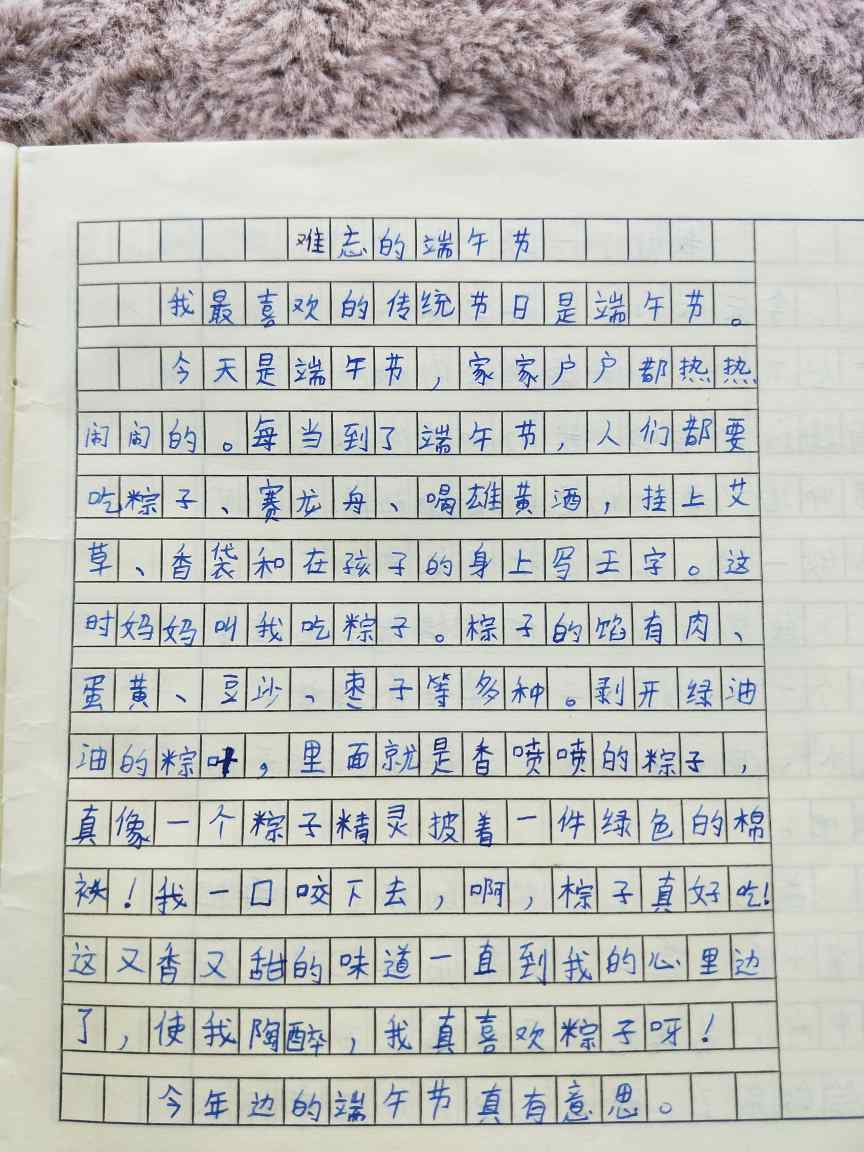 难忘的端午节
我最喜欢的传统节日是端午节。
今天是端午节，家家户户都热热
闹闹的。每当到了端午节，人们都要
吃粽子、赛龙舟、喝雄黄酒，挂上艾
草、香袋和在孩子的身上写王字。这
时妈妈叫我吃粽子。棕子的馅有肉、
蛋黄、豆沙、枣子等多种。剥开绿油
油的粽叶，里面就是香喷喷的粽子，
真像一个粽子精灵披着一件绿色的棉
袄！我一口咬下去，啊，棕子真好吃！
这又香又甜的味道一直到我的心里边
了，使我陶醉，我真喜欢粽子呀！
今年边的端午节真有意思。